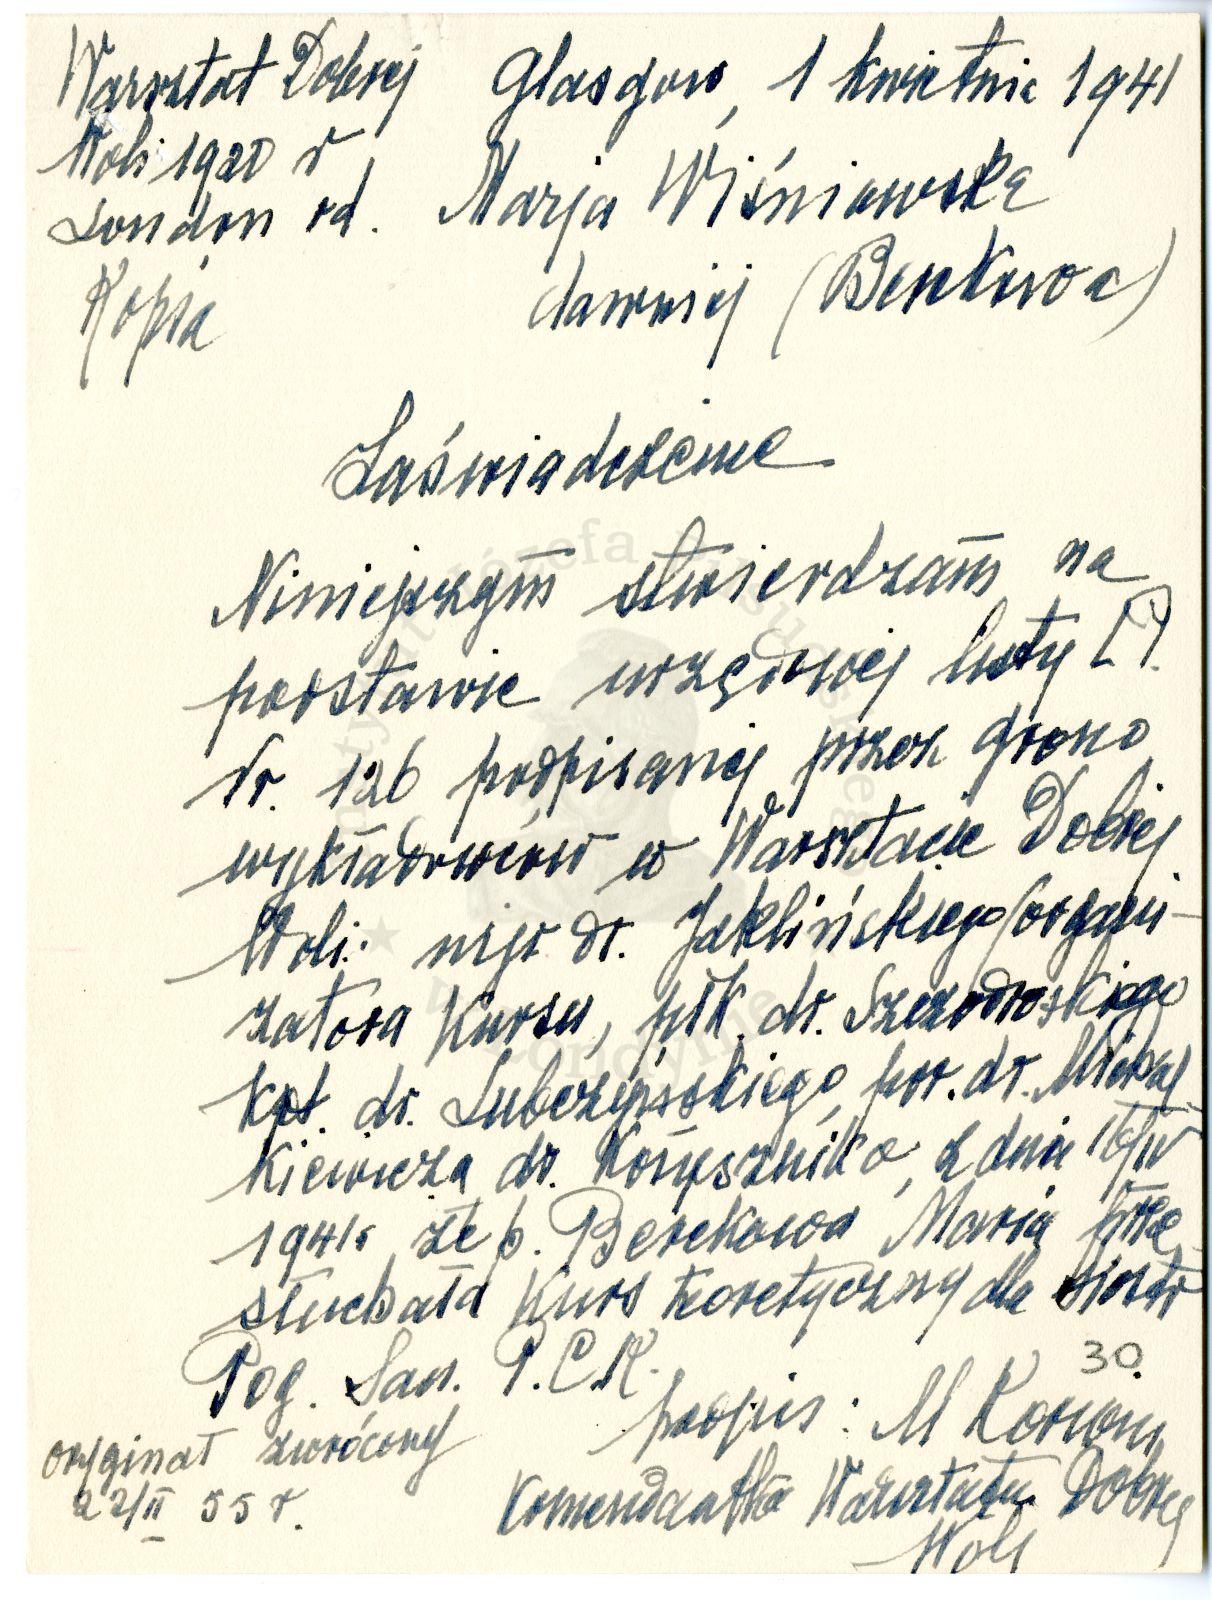 Warsztat Dobrej
Woli 1920 r
London od.
Kopia
Glasgow, 1 kwietnia 1941
Marja Wiśniewska
dawniej (Berekowa)
Zaświadczenie
Niniejszym stwierdzam na
podstawie urzędowej listy [?]
Nr. 126 podpisanej przez grono
wykładowców w Warsztacie Dobrej
Woli: mjr dr. Jaklińskiego /organi-
zatora Kursu, płk. dr. Szczodrowskiego
kpt. dr. Lubczyńskiego, por. dr. Mickaj-
kiewicza dr. z dnia 16/IV
1941r że p. Berekowa Maria prze-
słuchała Kurs teoretyczny dla sióstr
Pog. San. P.C.K.
30
podpis: M
Komendantka Warsztatu Dobrej
Woli
oryginał zwrócony
22/II 55 r.
Instytut Józefa Piłsudskiego
w Londynie